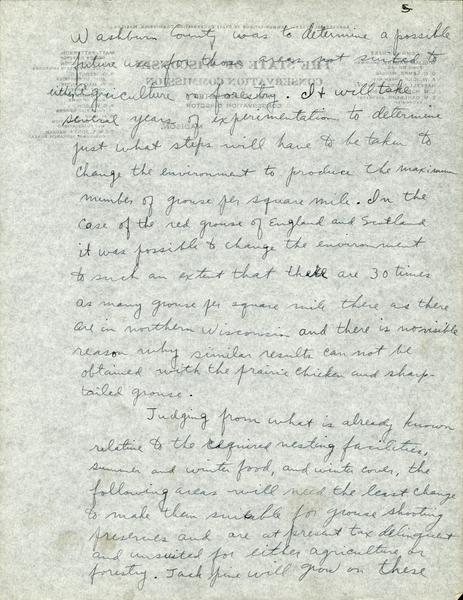 5
Washburn County was to determine a possible
future use for those areas not suited to
either agriculture or forestry. It will take
several years of experimentation to determine
just what steps will have to be taken to
change the environment to produce the maximum
number of grouse per square mile. In the
case of the red grouse of England and Scotland
it was possible to change the environment
to such an extent that there are 30 times
as many grouse per square mile there as there
are in northern Wisconsin and there is no visible
reason why similar results can not be
obtained with the prairie chicken and sharp-
tailed grouse.
Judging from what is already known
relative to the required nesting facilities,
summer and winter food, and winter cover, the
following areas will need the least change
to make them suitable for grouse shooting
preserves and are at present tax delinquent
and unsuited for either agriculture or
forestry. Jack pine will grow on these